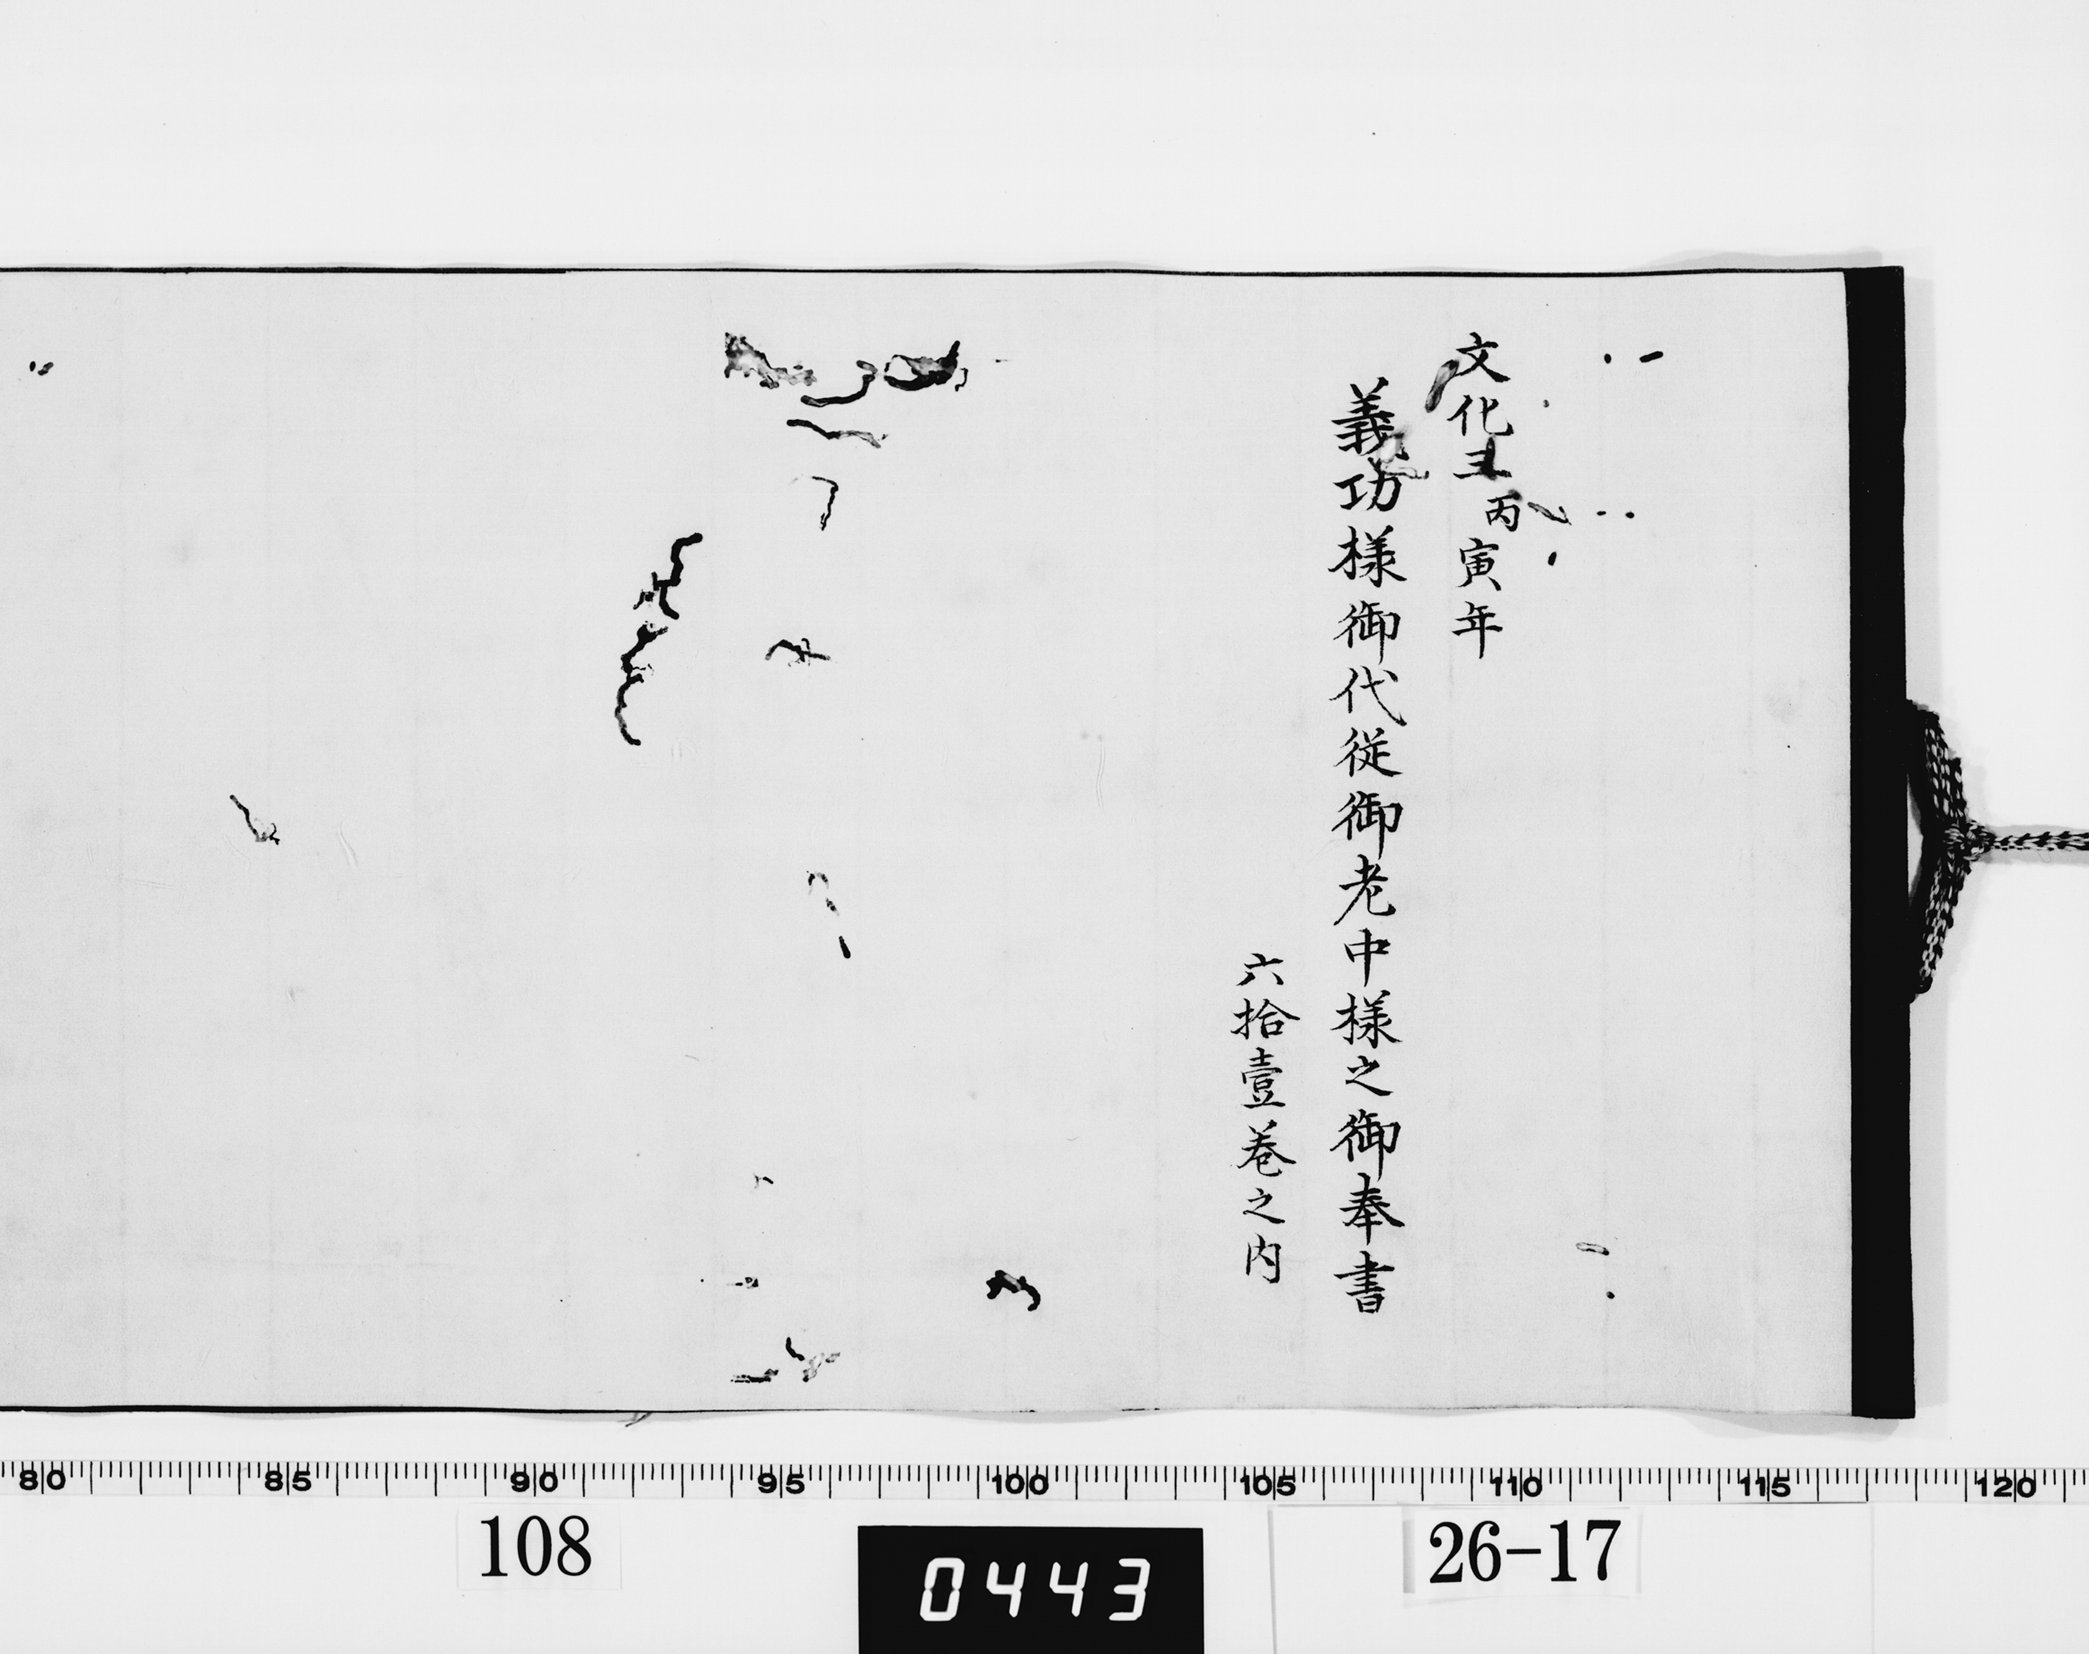 文化三丙寅年
義功様御代従御老中様之御奉書
六拾壹巻之内
80 85 90 95 100 105 110 115 120
108
0443
26-17